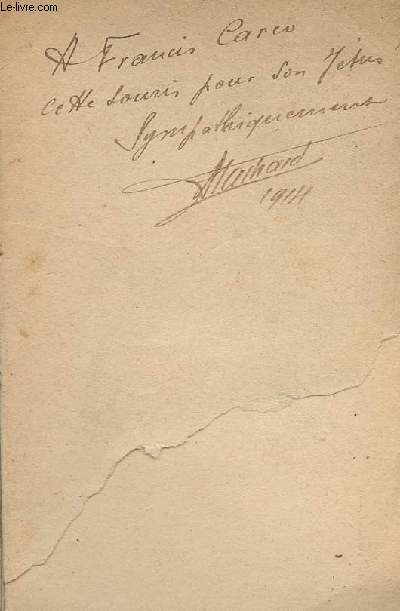 www.le-livre.com
A Francis Carco
Cette souris pour son Jésus
Sympathiquement
Machard
1914